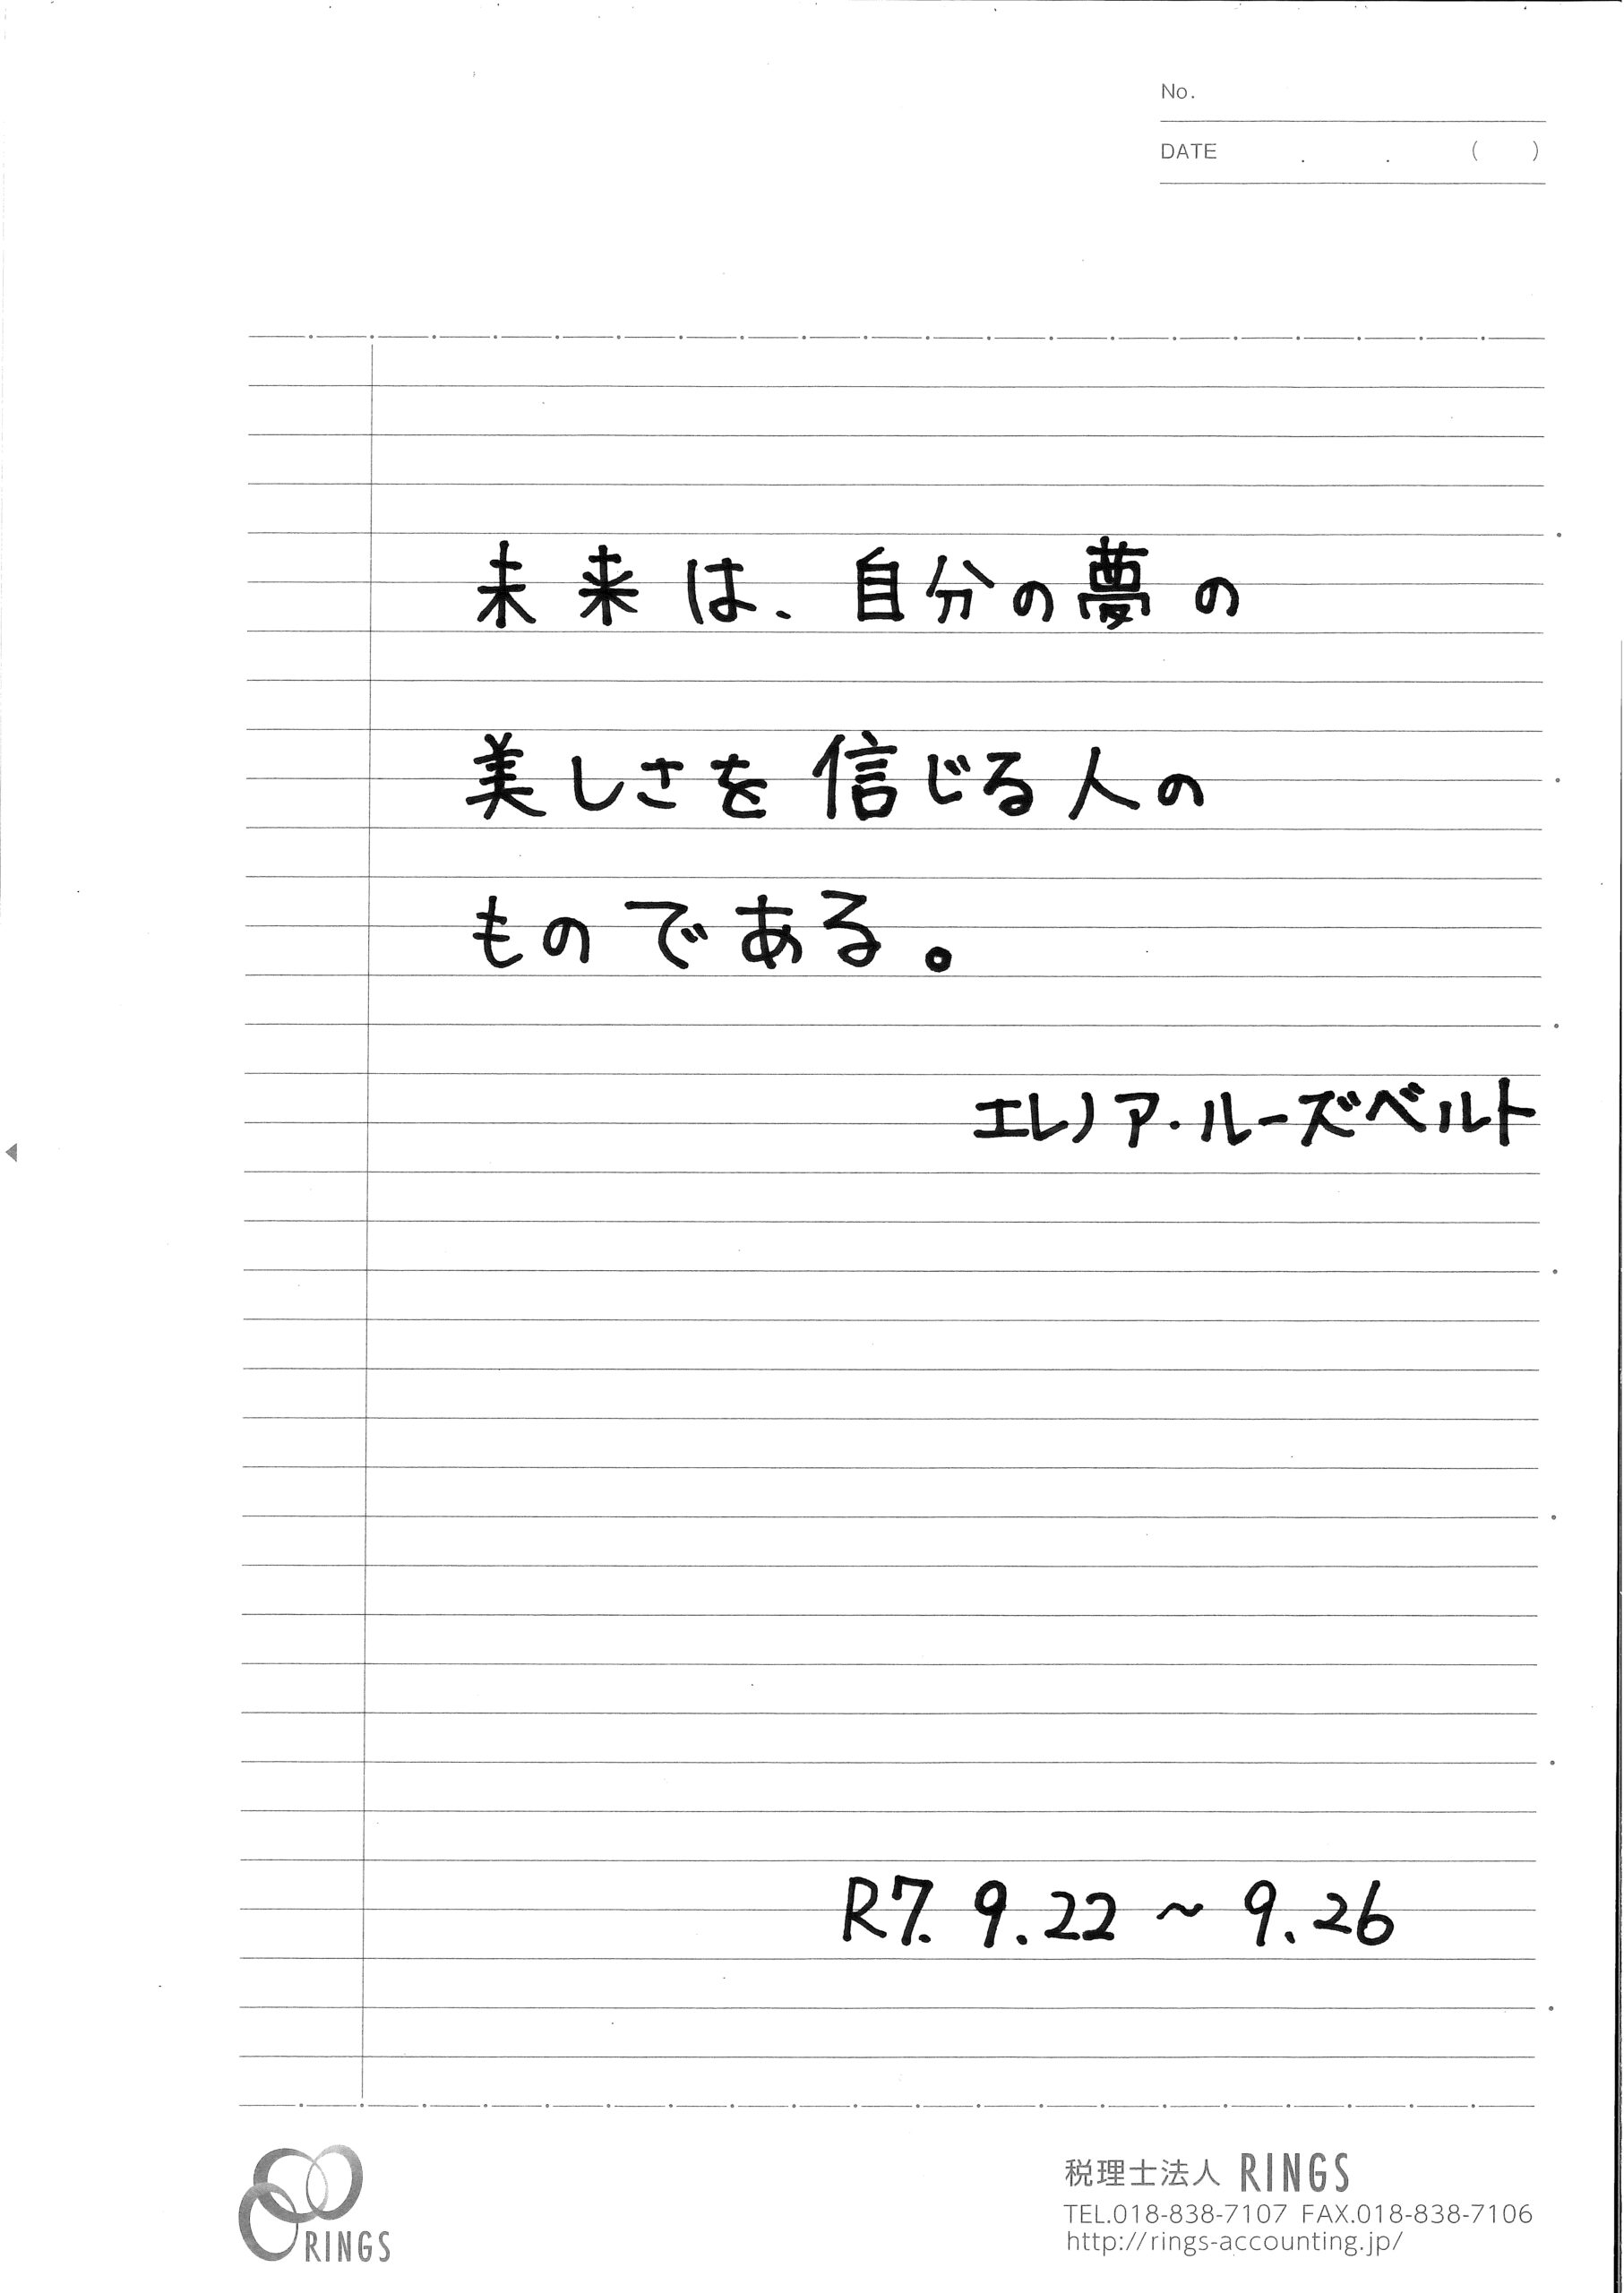 No.
DATE . . ( )
未来は、自分の夢の
美しさを信じる人の
ものである。
エレノア・ルーズベルト
R7. 9.22 ~ 9.26
RINGS
税理士法人 RINGS
TEL.018-838-7107 FAX.018-838-7106
http://rings-accounting.jp/